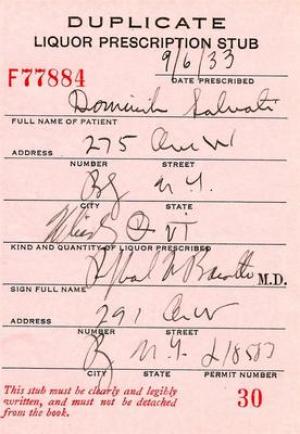 DUPLICATE
LIQUOR PRESCRIPTION STUB
9/6/33
F77884 DATE PRESCRIBED
Dominik Salvati
FULL NAME OF PATIENT
ADDRESS 275 Ave W
NUMBER STREET
N.Y.
CITY STATE
KIND AND QUANTITY OF LIQUOR PRESCRIBED
M.D.
SIGN FULL NAME
ADDRESS 291 Ave W
NUMBER STREET
N.Y.
CITY STATE PERMIT NUMBER
This stub must be clearly and legibly
written, and must not be detached
from the book.
30